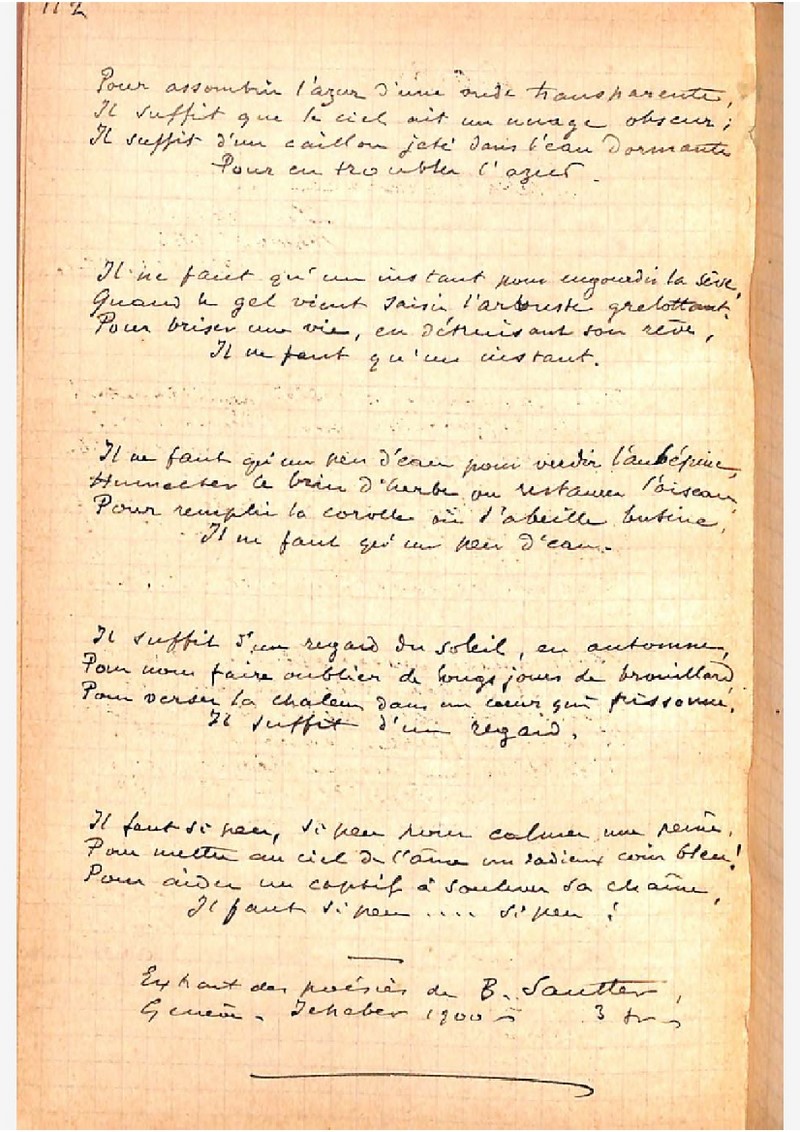 112
Pour assombrir l'azur d'une onde transparente,
Il suffit que le ciel ait un nuage obscur ;
Il suffit d'un caillou jeté dans l'eau dormante
Pour en troubler l'azur.
Il ne faut qu'un instant pour engourdir la sève,
Quand le gel vient saisir l'arbuste grelottant,
Pour briser une vie, en détruisant son rêve,
Il ne faut qu'un instant.
Il ne faut qu'un peu d'eau pour verdir l'aubépine,
Humecter le brin d'herbe ou restaurer l'oiseau,
Pour remplir la corolle où l'abeille butine,
Il ne faut qu'un peu d'eau.
Il suffit d'un regard du soleil, en automne,
Pour nous faire oublier de longs jours de brouillard,
Pour verser la chaleur dans un cœur qui frissonne,
Il suffit d'un regard.
Il faut si peu, si peu pour calmer une peine,
Pour mettre au ciel de l'âme un radieux coin bleu !
Pour aider un captif à soulever sa chaîne,
Il faut si peu .... si peu !
Extrait des poésies de B. Sautter,
Genève. Jeheber 1900 - 3 frs